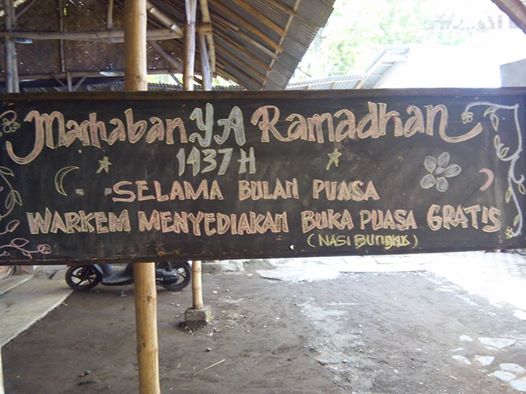 Marhaban YA Ramadhan
1437 H
SELAMA BULAN PUASA
WARKEM MENYEDIAKAN BUKA PUASA GRATIS
(NASI BUNGKUS)